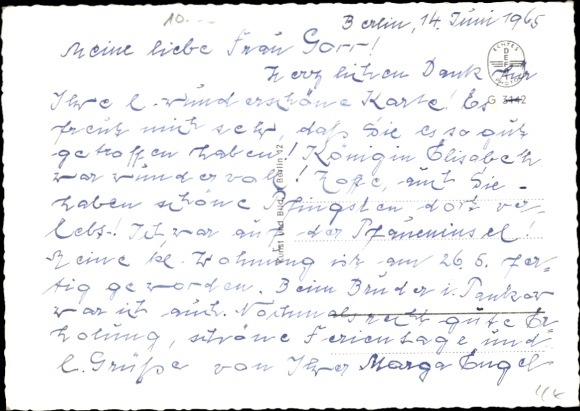 10.--
Berlin, 14. Juni 1965
Meine liebe Frau Gorr!
Herzlichen Dank für
Ihre l. wunderschöne Karte! Es
freut mich sehr, daß Sie es so gut
getroffen haben! Königin Elisabeth
war wundervoll! Hoffe, auch Sie
haben schöne Pfingsten dort ver-
lebt! Ich war auf der Pfaueninsel!
Meine kl. Wohnung ist am 26. 6. fer-
tig geworden. Beim Bruder i. Pankow
war ich auch. Nochmals recht gute Er-
holung, schöne Ferientage und
l. Grüße von Ihrer Marga Engel
ECHTES
DEFOT
FOTO
G 3142
Kunst und Bild, Berlin